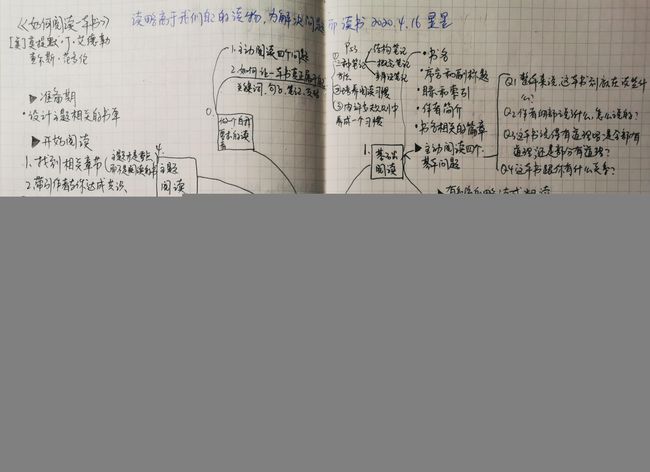 《如何阅读一本书》
[美]莫提默·J·艾德勒
查尔斯·范多伦
谋略高于我们自己的读物,为解决问题而读书 2020.4.16 星星
▶准备期
·设计主题相关的书单
▶开始阅读
1.找到相关章节
2.带引作者与你达成共识
4.
主题阅读
1.主动阅读四个问题
2.如何让一本书真正属于自己
关键词、句子、笔记、
0.
做一个自我要求的读者
P33
①三种笔记方法
结构笔记
概念笔记
辩证笔记
②培养阅读习惯
③由许多规则中养成一个习惯
1.
基础阅读
·书名
·序言和副标题
·目录和索引
·作者简介
·书名相关的篇章
▶主动阅读四个基本问题
Q1整本来说,这本书到底在谈些什么?
Q2作者细部说什么,怎么说的?
Q3这本书说得有道理吗?是全部有道理,还是部分有道理?
Q4这本书跟你有什么关系?